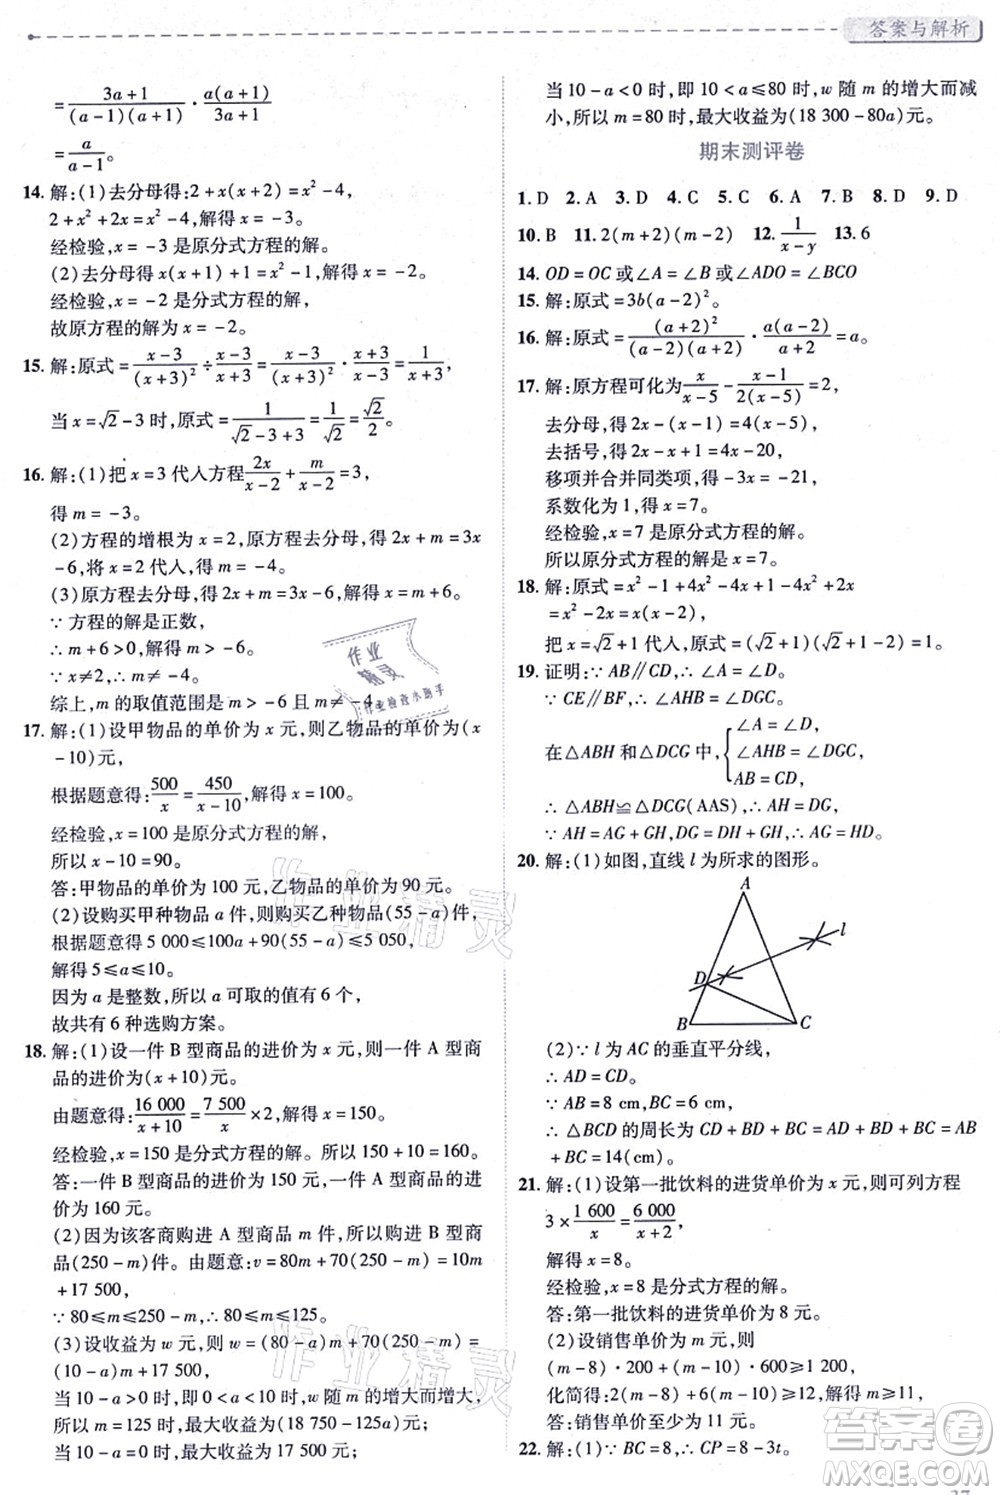 答案与解析
=\frac{3a+1}{(a-1)(a+1)}·\frac{a(a+1)}{3a+1}
=\frac{a}{a-1}。
14. 解:(1)去分母得:2+x(x+2)=x²-4,
2+x²+2x=x²-4,得 x=-3。
经检验,x=-3 是原分式方程的解;
(2)去分母得 x(x+1)+1=x²-1,得 x=-2。
经检验,x=-2 是分式方程的解,
故原方程的解为 x=-2。
15. 解:原式=\frac{x-3}{(x+3)²}÷\frac{x-3}{x+3}=\frac{x-3}{(x+3)²}·\frac{x+3}{x-3}=\frac{1}{x+3},
当 x=√2-3 时,原式=\frac{1}{√2-3+3}=\frac{1}{√2}=\frac{√2}{2}。
16. 解:(1)把 x=3 代入方程\frac{2x}{x-2}+\frac{m}{x-2}=3,
得 m=-3。
(2)方程的增根为 x=2,原方程去分母,得 2x+m=3x
-6,将 x=2 代入,得 m=-4。
(3)原方程去分母,得 2x+m=3x-6,解得 x=m+6。
∵方程的解是正数,
∴m+6>0,解得 m>-6。
∵x≠2,∴m≠-4。
综上,m 的取值范围是 m>-6 且 m≠-4。
17. 解:(1)设甲物品的单价为 x 元,则乙物品的单价为(x
-10)元,
根据题意得:\frac{500}{x}=\frac{450}{x-10},解得 x=100。
经检验,x=100 是原分式方程的解,
所以 x-10=90。
答:甲物品的单价为 100 元,乙物品的单价为 90 元。
(2)设购买甲种物品 a 件,则购买乙种物品(55-a)件,
根据题意得 5 000≤100a+90(55-a)≤5 050,
解得 5≤a≤10。
因为 a 是整数,所以 a 可取的值有 6 个,
故共有 6 种选购方案。
18. 解:(1)设一件 B 型商品的进价为 x 元,则一件 A 型商
品的进价为(x+10)元。
由题意得:\frac{16 000}{x+10}=\frac{7 500}{x}×2,解得 x=150。
经检验,x=150 是分式方程的解,x+10=160。
答:一件 B 型商品的进价为 150 元,一件 A 型商品的进价
为 160 元。
(2)因为该客商购进 A 型商品 m 件,所以购进 B 型商
品(250-m)件。由题意:v=80m+70(250-m)=10m
+17 500,
∵80≤m≤250-m,∴80≤m≤125。
(3)设收益为 w 元,则 w=(80-a)m+70(250-m)=
(10-a)m+17 500,
当 10-a>0 时,即 0<a<10 时,w 随 m 的增大而增大,
所以 m=125 时,最大收益为(18 750-125a)元;
当 10-a=0 时,最大收益为 17 500 元;
当 10-a<0 时,即 10<a≤80 时,w 随 m 的增大而减
小,所以 m=80 时,最大收益为(18 300-80a)元。
期末测评卷
1. D 2. A 3. D 4. C 5. C 6. A 7. B 8. D 9. D
10. B 11. 2(m+2)(m-2) 12. \frac{1}{x-y} 13. 6
14. OD=OC 或∠A=∠B 或∠ADO=∠BCO
15. 解:原式=3b(a-2)²。
16. 解:原式=\frac{(a+2)²}{(a-2)(a+2)}·\frac{a(a-2)}{a+2}=a。
17. 解:原方程可化为\frac{x}{x-5}-\frac{x-1}{2(x-5)}=2,
去分母,得 2x-(x-1)=4(x-5),
去括号,得 2x-x+1=4x-20,
移项并合并同类项,得-3x=-21,
系数化为 1,得 x=7。
经检验,x=7 是原分式方程的解。
所以原分式方程的解是 x=7。
18. 解:原式=x²-1+4x²-4x+1-4x²+2x
=x²-2x=x(x-2),
把 x=√2+1 代入,原式=(√2+1)(√2+1-2)=1。
19. 证明:∵AB∥CD,∴∠A=∠D。
∵CE∥BF,∴∠AHB=∠DGC。
在△ABH 和△DCG 中,{∠A=∠D, ∠AHB=∠DGC, AB=CD,
∴△ABH≌△DCG(AAS),∴AH=DG,
∵AH=AG+GH,DG=DH+GH,∴AG=HD。
20. 解:(1)如图,直线 l 为所求的图形。
A
l
D
B
C
(2)∵l 为 AC 的垂直平分线,
∴AD=CD。
∵AB=8 cm,BC=6 cm,
∴△BCD 的周长为 CD+BD+BC=AD+BD+BC=
14(cm)。
21. 解:(1)设第一批饮料的进货单价为 x 元,则可列方程
3×\frac{1 600}{x}=\frac{6 000}{x+2},
解得 x=8。
经检验,x=8 是分式方程的解。
答:第一批饮料的进货单价为 8 元。
(2)设销售单价为 m 元,则
(m-8)·200+(m-10)·600≥1 200,
化简得:2(m-8)+6(m-10)≥12,解得 m≥11。
答:销售单价至少为 11 元。
22. 解:(1)∵BC=8,∴CP=8-3t。
作业精灵
作业检查小助手
作业精灵
作业精灵
答案圈
MXQE.COM